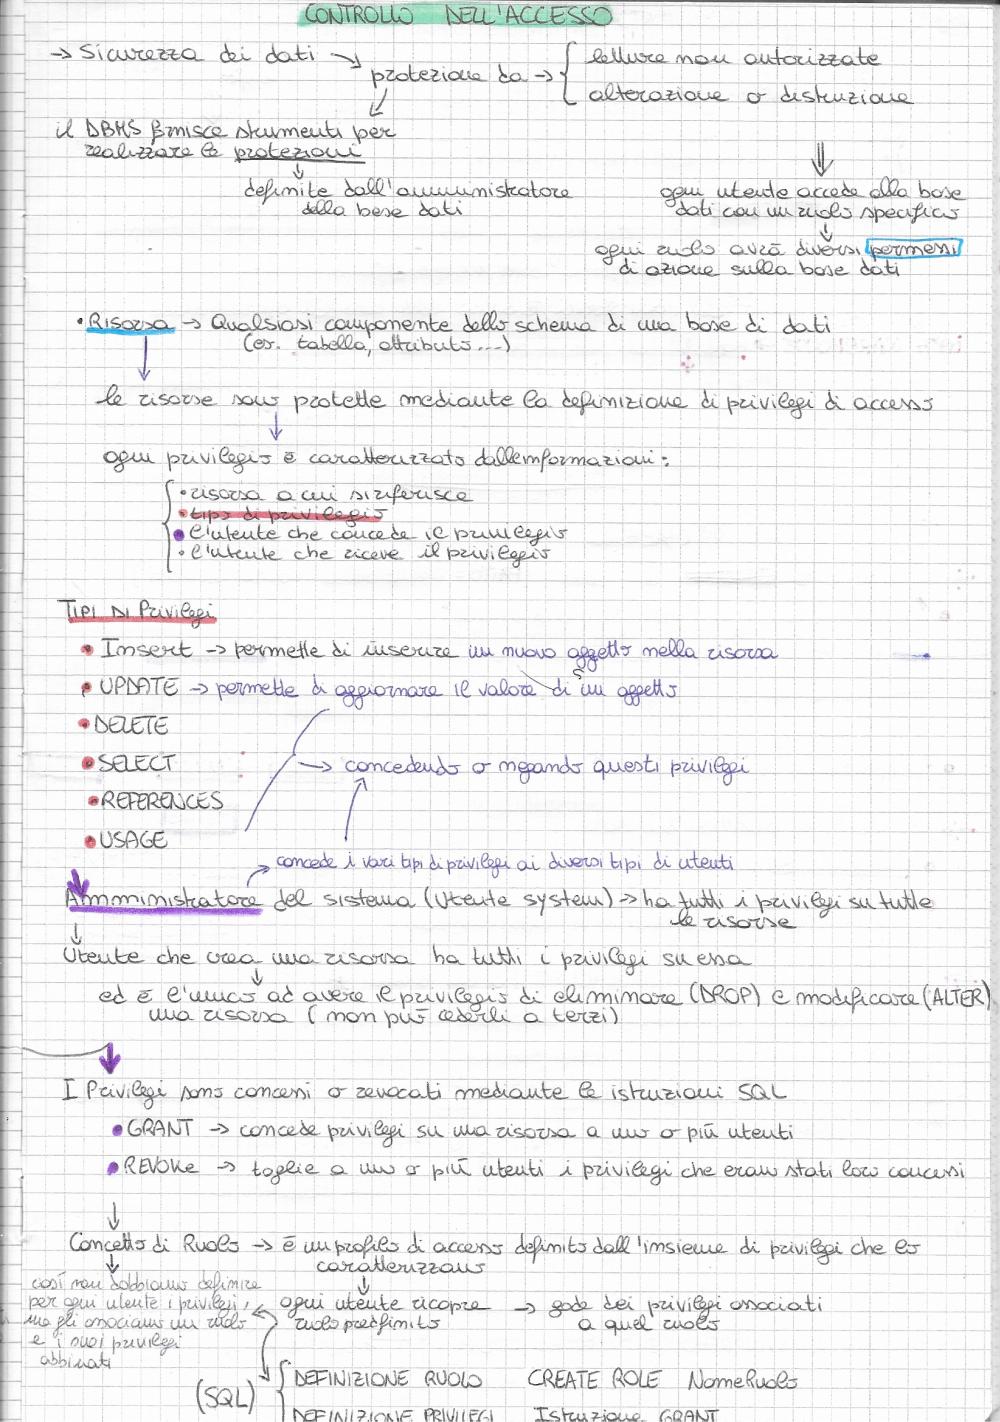 CONTROLLO DELL'ACCESSO
→ Sicurezza dei dati
protezione da →
letture non autorizzate
alterazione o distruzione
il DBMS fornisce strumenti per
realizzare le protezioni
definite dall'amministratore
della base dati
ogni utente accede alla base
dati con un ruolo specifico
ogni ruolo avrà diversi permessi
di azione sulla base dati
• Risorsa → Qualsiasi componente dello schema di una base di dati
(es. tabella, attributo...)
le risorse sono protette mediante la definizione di privilegi di accesso
ogni privilegio è caratterizzato dalle informazioni:
• risorsa a cui si riferisce
• tipo di privilegio
• l'utente che concede il privilegio
• l'utente che riceve il privilegio
TIPI DI Privilegi
• Insert → permette di inserire un nuovo oggetto nella risorsa
• UPDATE → permette di aggiornare il valore di un oggetto
• DELETE
• SELECT
→ concedendo o negando questi privilegi
• REFERENCES
• USAGE
concede i vari tipi di privilegi ai diversi tipi di utenti
Amministratore del sistema (Utente system) → ha tutti i privilegi su tutte
le risorse
Utente che crea una risorsa ha tutti i privilegi su essa
ed è l'unico ad avere il privilegio di eliminare (DROP) e modificare (ALTER)
una risorsa (non può cederli a terzi)
I Privilegi sono concessi o revocati mediante le istruzioni SQL
• GRANT → concede privilegi su una risorsa a uno o più utenti
• REVOKE → toglie a uno o più utenti i privilegi che erano stati loro concessi
Concetto di Ruolo → è un profilo di accesso definito dall'insieme di privilegi che lo
caratterizzano
così non dobbiamo definire
per ogni utente i privilegi,
ma gli associamo un ruolo
e i suoi privilegi
abbinati
ogni utente ricopre → gode dei privilegi associati
ruolo predefinito
a quel ruolo
(SQL)
DEFINIZIONE RUOLO CREATE ROLE NomeRuolo
DEFINIZIONE PRIVILEGI Istruzione GRANT